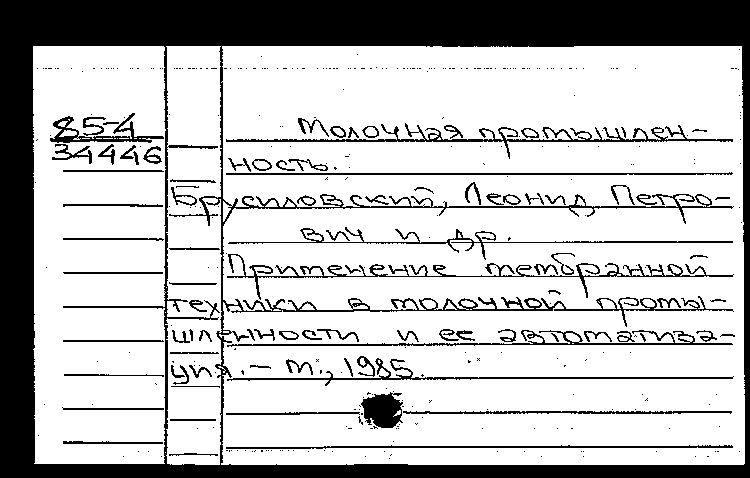 85-4
34446
Молочная промышлен-
ность.
Брусиловский, Леонид Петро-
вич и др.
Применение мембранной
техники в молочной промы-
шленности и ее автоматиза-
ция. - М., 1985.